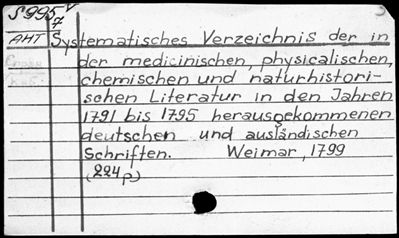 S 995 v
7
AHT Systematisches Verzeichnis der in
der medicinischen, physicalischen,
chemischen und naturhistori-
schen Literatur in den Jahren
1791 bis 1795 herausgekommenen
deutschen und ausländischen
Schriften. Weimar, 1799
(224 p)